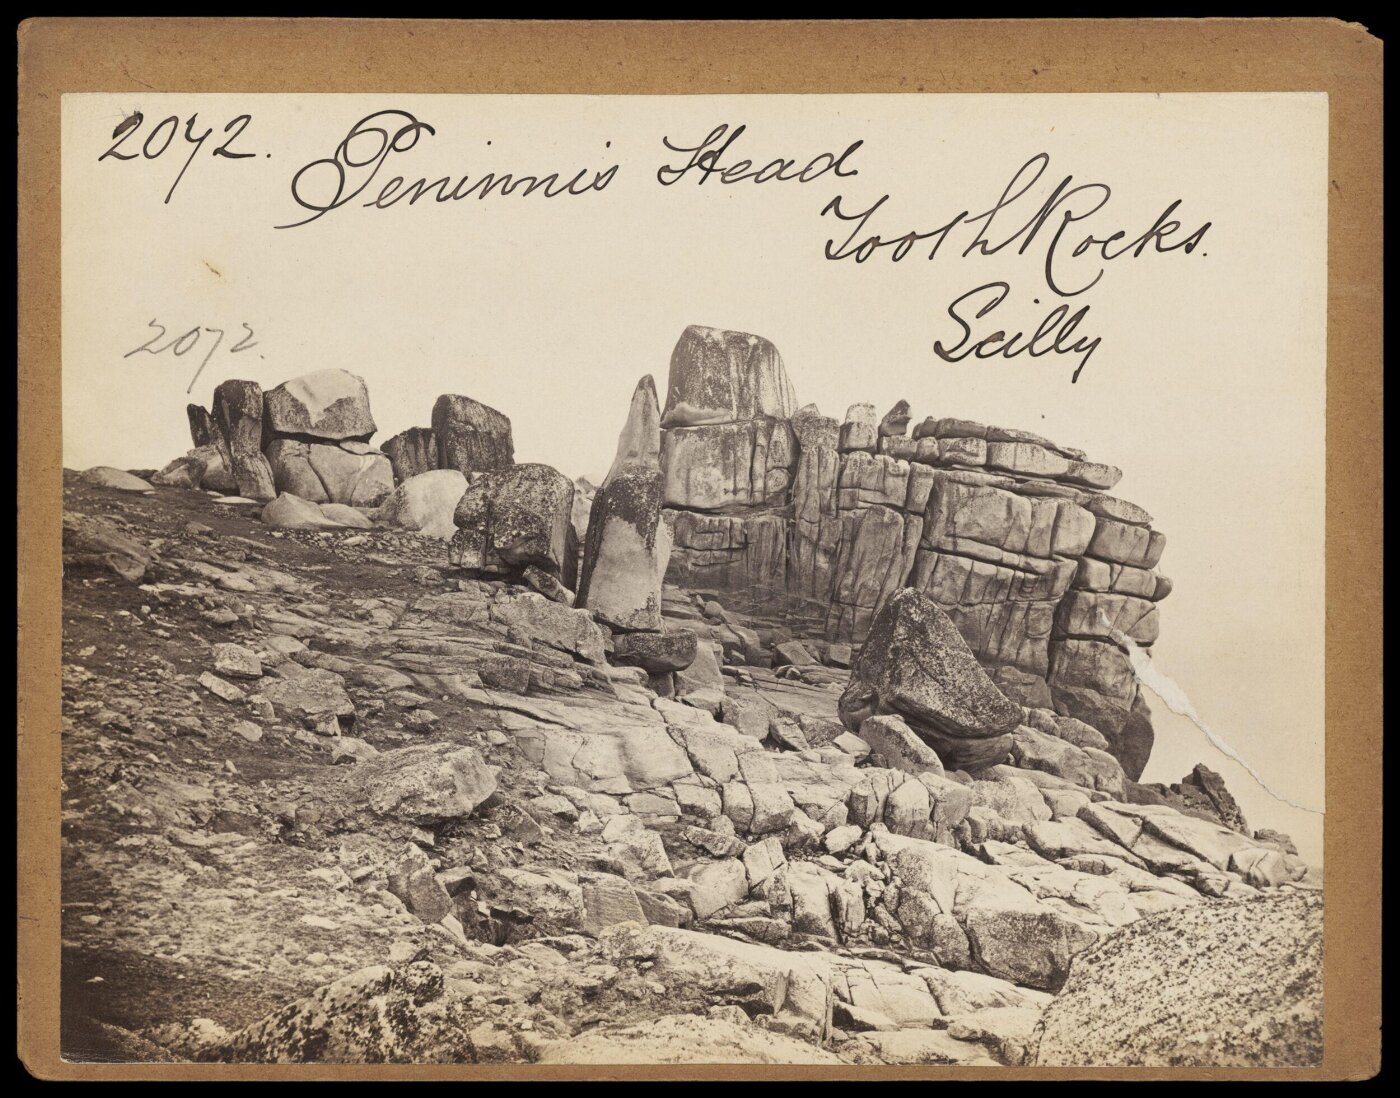 2072. Peninnis Head
Tooth Rocks.
Scilly
2072.